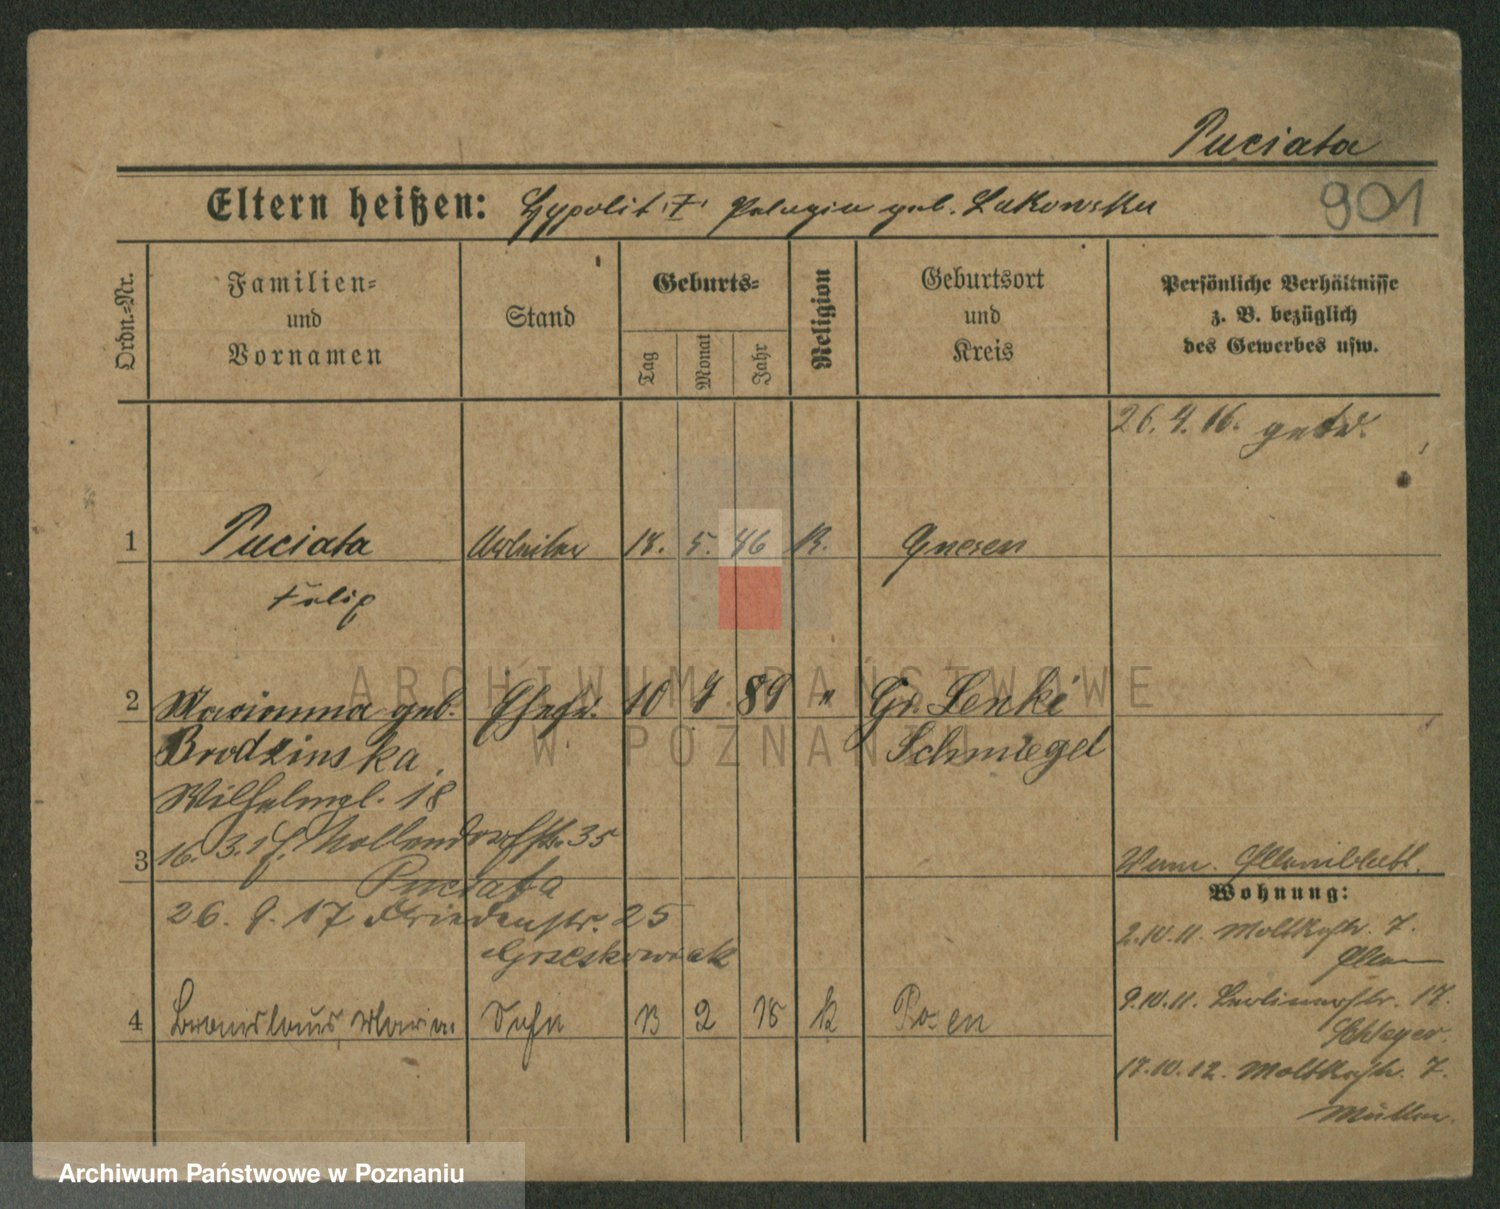 Puciata
901
Eltern heißen: Hypolit u. Pelagia geb. Lukowska
Ordn.-Nr.
Familien-
und
Vornamen
Stand
Geburts-
Tag
Monat
Jahr
Religion
Geburtsort
und
Kreis
Persönliche Verhältnisse
z. B. bezüglich
des Gewerbes usw.
26. 4. 16.
1 Puciata Arbeiter 18. 5. 86 K. Gnesen
Felix
ARCHIWUM PAŃSTWOWE
W POZNANIU
2 Marianna geb. Ehefr. 10 7 89 " Gr. Lenki
Brodzinska Schmiegel
Wilhelmpl. 18
3 16. 3. Nollendorfstr. 35
Puciata
Wohnung:
26. 9. 17 Friedenstr. 25
Grzeskowiak
2.10.11. Moltkestr. 7.
9.10.11. Berlinerstr. 17.
Schleyer.
4 Bronislaus, Marian Sohn 13 2 18 k Posen
17.10.12. Moltkestr. 7.
Müller.
Archiwum Państwowe w Poznaniu